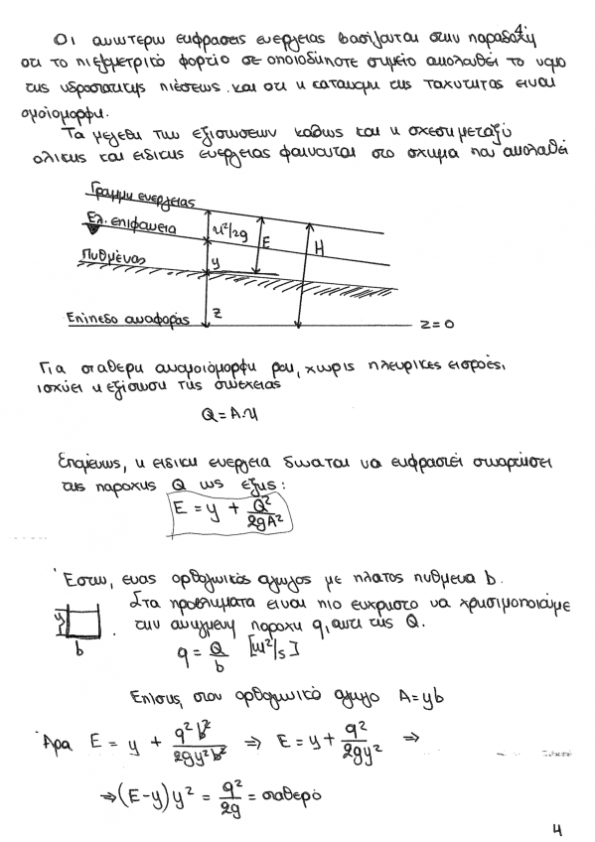 4
Οι ανωτερω εκφρασεις ενεργειας βασιζονται στην παραδοχή
οτι το πιεζομετρικό φορτίο σε οποιοδήποτε σημείο ακολουθεί το νομο
της υδροστατικης πιέσεως και οτι η κατανομη της ταχυτητας ειναι
ομοίομορφη.
Τα μεγεθη των εξισωσεων καθως και η σχεση μεταξύ
ολικης και ειδικης ενεργειας φαινονται στο σχημα που ακολοθεί
Γραμμη ενεργειας
Ελ. επιφανεια u²/2g E H
Πυθμένας y
Επίπεδο αναφοράς z z=0
Για σταθερη ανομοιόμορφη ροη, χωρις πλευρικες εισροές,
ισχύει η εξίσωση της συνεχειας
Q = A.u
Επομένως, η ειδικη ενεργεια δυναται να εκφραστεί συναρτήσει
της παροχης Q ως εξης:
E = y + Q²/2gA²
Έστω, ενας ορθογωνικός αγωγος με πλατος πυθμενα b.
Στα προβληματα ειναι πιο ευχρηστο να χρησιμοποιουμε
την ανηγμενη παροχη q, αντι της Q.
y
b
q = Q/b [m²/s]
Επισης, στον ορθογωνικό αγωγο A=yb
Άρα E = y + q²b²/2gy²b² ⇒ E = y + q²/2gy² ⇒
⇒ (E-y)y² = q²/2g = σταθερό
4